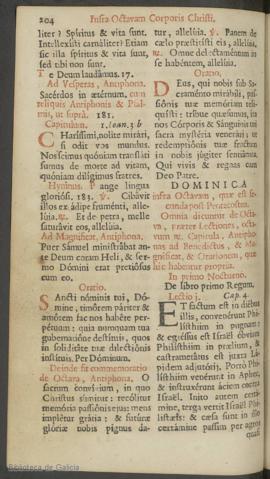 204 Infra Octavam Corporis Christi.
liter? Spiritus & vita sunt.
Intellexisti carnaliter? Etiam
sic illa spiritus & vita sunt,
sed tibi non sunt.
Te Deum laudámus. 17.
Ad Vesperas, Antiphona.
Sacérdos in ætérnum, cum
reliquis Antiphonis & Psal-
mis, ut suprà. 181.
Capitulum. 1. Ioan. 3. b
CHaríssimi, nolíte mirári,
si odit vos mundus.
Noscimus quóniam transláti
sumus de morte ad vitam,
quóniam diligimus fratres.
Hymnus. Pange lingua
gloriósi. 183. ℣. Cibávit
illos ex ádipe fruménti, alle-
lúia. ℟. Et de petra, melle
saturávit eos, allelúia.
Ad Magnificat, Antiphona.
Puer Sámuel ministrábat an-
te Deum coram Heli, & ser-
mo Dómini erat pretiósus
cum eo,
Oratio.
SAncti nóminis tui, Dó-
mine, timórem páriter &
amórem fac nos habére per-
pétuum: quia nunquam tua
gubernatióne destítuis, quos
in soliditáte tuæ dilectiónis
instítuis. Per Dóminum.
Deinde fit commemoratio
de Octava, Antiphona. O
sacrum convívium, in quo
Christus súmitur: recólitur
memória passiónis ejus: mens
implétur grátia: & futúræ
glóriæ nobis pignus da-
tur, allelúia. ℣. Panem de
cælo præstitísti eis, allelúia.
℟. Omne delectaméntum in
se habéntem, allelúia.
Oratio.
DEus, qui nobis sub Sa-
craménto mirábili, pas-
siónis tuæ memóriam reli-
quísti: tríbue quæsumus, ita
nos Córporis & Sánguinis tui
sacra mystéria venerári; ut
redemptiónis tuæ fructum
in nobis júgiter sentiámus.
Qui vivis & regnas cum
Deo Patre.
DOMINICA
infra Octavam, quæ est se-
cunda post Pentecosten.
Omnia dicuntur de Octa-
va, præter Lectiones, octa-
vum ℟. Capitula, Antipho-
nas ad Benedictus, & Ma-
gnificat, & Orationem, quæ
hic habentur propria.
In primo Nocturno.
De libro primo Regum.
Lectio j. Cap. 4.
ET factum est in diébus
illis, convenérunt Phi-
lísthiim in pugnam:
& egréssus est Israël óbviam
Philísthiim in prælium, &
castrametátus est juxta Lá-
pidem adjutórii. Porrò Phi-
lísthiim venérunt in Aphec,
& instruxérunt áciem contra
Israël. Inito autem certá-
mine, terga vertit Israël Phi-
listǽis: & cæsa sunt in illo
certámine passim per agros
quasi
Biblioteca de Galicia